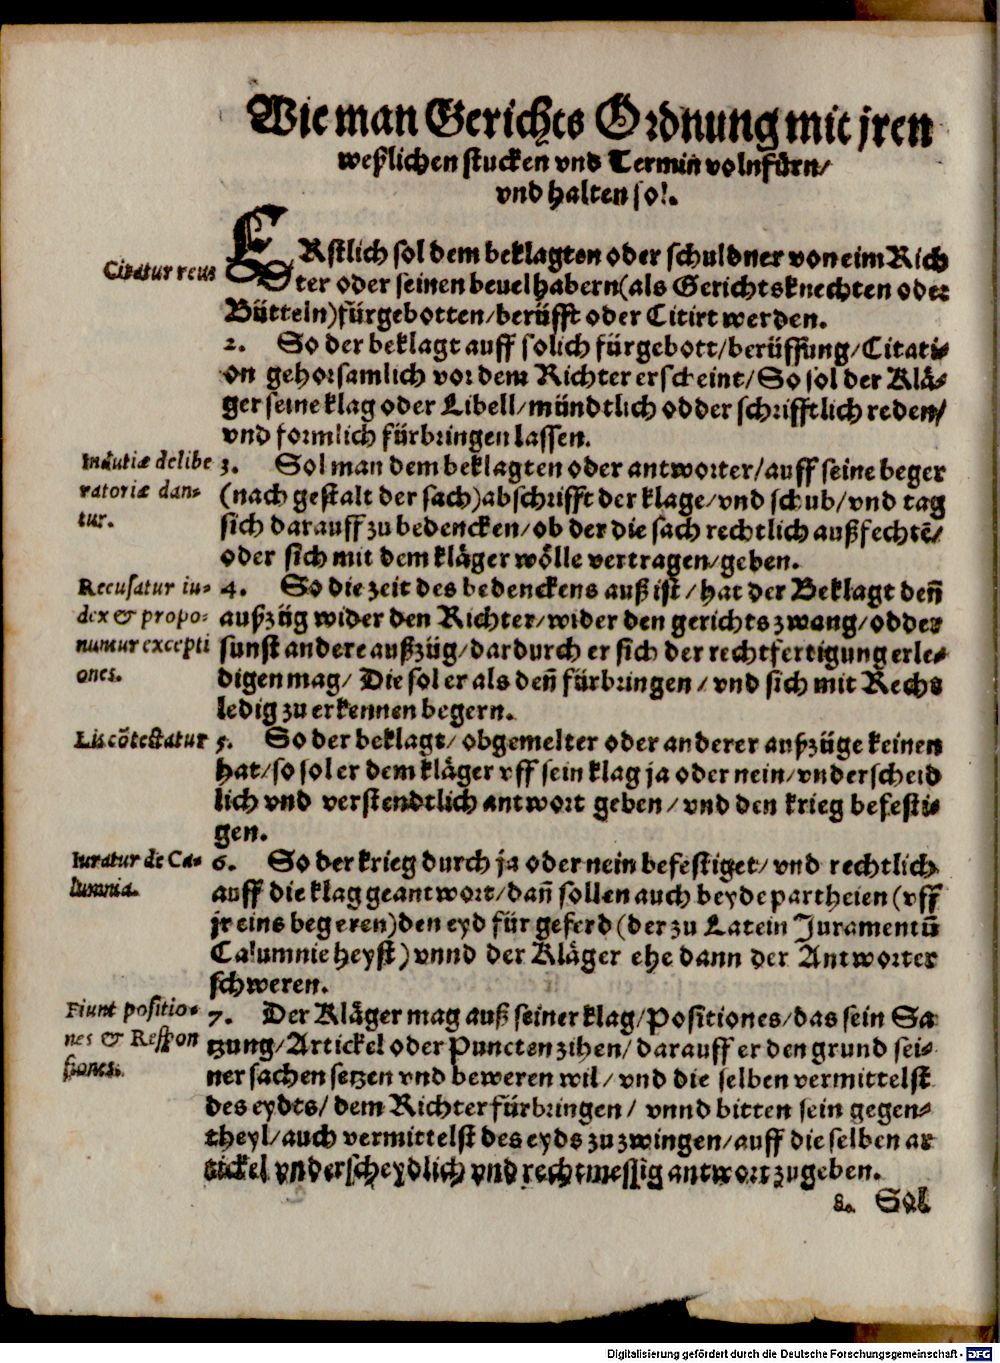 Wie man Gerichts Ordnung mit jren
weßlichen stucken vnd Termin volnfürn/
vnd halten sol.
Citatur reus
ERstlich sol dem beklagten oder schuldner von eim Rich
ter oder seinen beuelhabern (als Gerichtsknechten oder
Bütteln) fürgebotten/berüfft oder Citirt werden.
2. So der beklagt auff solich fürgebott/berüffung/Citati-
on gehorsamlich vor dem Richter erscheint/So sol der Klä-
ger seine klag oder Libell/mündtlich odder schrifftlich reden/
vnd formlich fürbringen lassen.
Indutiæ delibe
ratoriæ dan-
tur.
3. Sol man dem beklagten oder antworter/auff seine beger
(nach gestalt der sach) abschrifft der klage/vnd schub/vnd tag
sich darauff zu bedencken/ob der die sach rechtlich außfechtē/
oder sich mit dem kläger wölle vertragen/geben.
Recusatur iu-
dex & propo-
nuntur excepti
ones.
4. So die zeit des bedenckens auß ist/hat der Beklagt deñ
außzüg wider den Richter/wider den gerichts zwang/odder
sunst andere außzüg/dardurch er sich der rechtfertigung erle-
digen mag/Die sol er als deñ fürbringen/vnd sich mit Rechs
ledig zu erkennen begern.
Lis cōtestatur
5. So der beklagt/obgemelter oder anderer außzüge keinen
hat/so sol er dem kläger vff sein klag ja oder nein/vnderscheid
lich vnd verstendtlich antwort geben/vnd den krieg befesti-
gen.
Iuratur de Ca-
lumnia.
6. So der krieg durch ja oder nein befestiget/vnd rechtlich
auff die klag geantwort/dañ sollen auch beyde partheien (vff
jr eins begeren) den eyd für geferd (der zu Latein Juramentū
Calumnie heyst) vnnd der Kläger ehe dann der Antworter
schweren.
Fiunt positio-
nes & Respon
siones.
7. Der Kläger mag auß seiner klag/Positiones/das sein Sa
tzung/Artickel oder Puncten zihen/darauff er den grund sei-
ner sachen setzen vnd beweren wil/vnd die selben vermittelst
des eydts/dem Richter fürbringen/vnnd bitten sein gegen-
theyl/auch vermittelst des eyds zu zwingen/auff die selben ar
tickel vnderscheydlich vnd rechtmessig antwort zugeben.
8. Sol
Digitalisierung gefördert durch die Deutsche Forschungsgemeinschaft - DFG